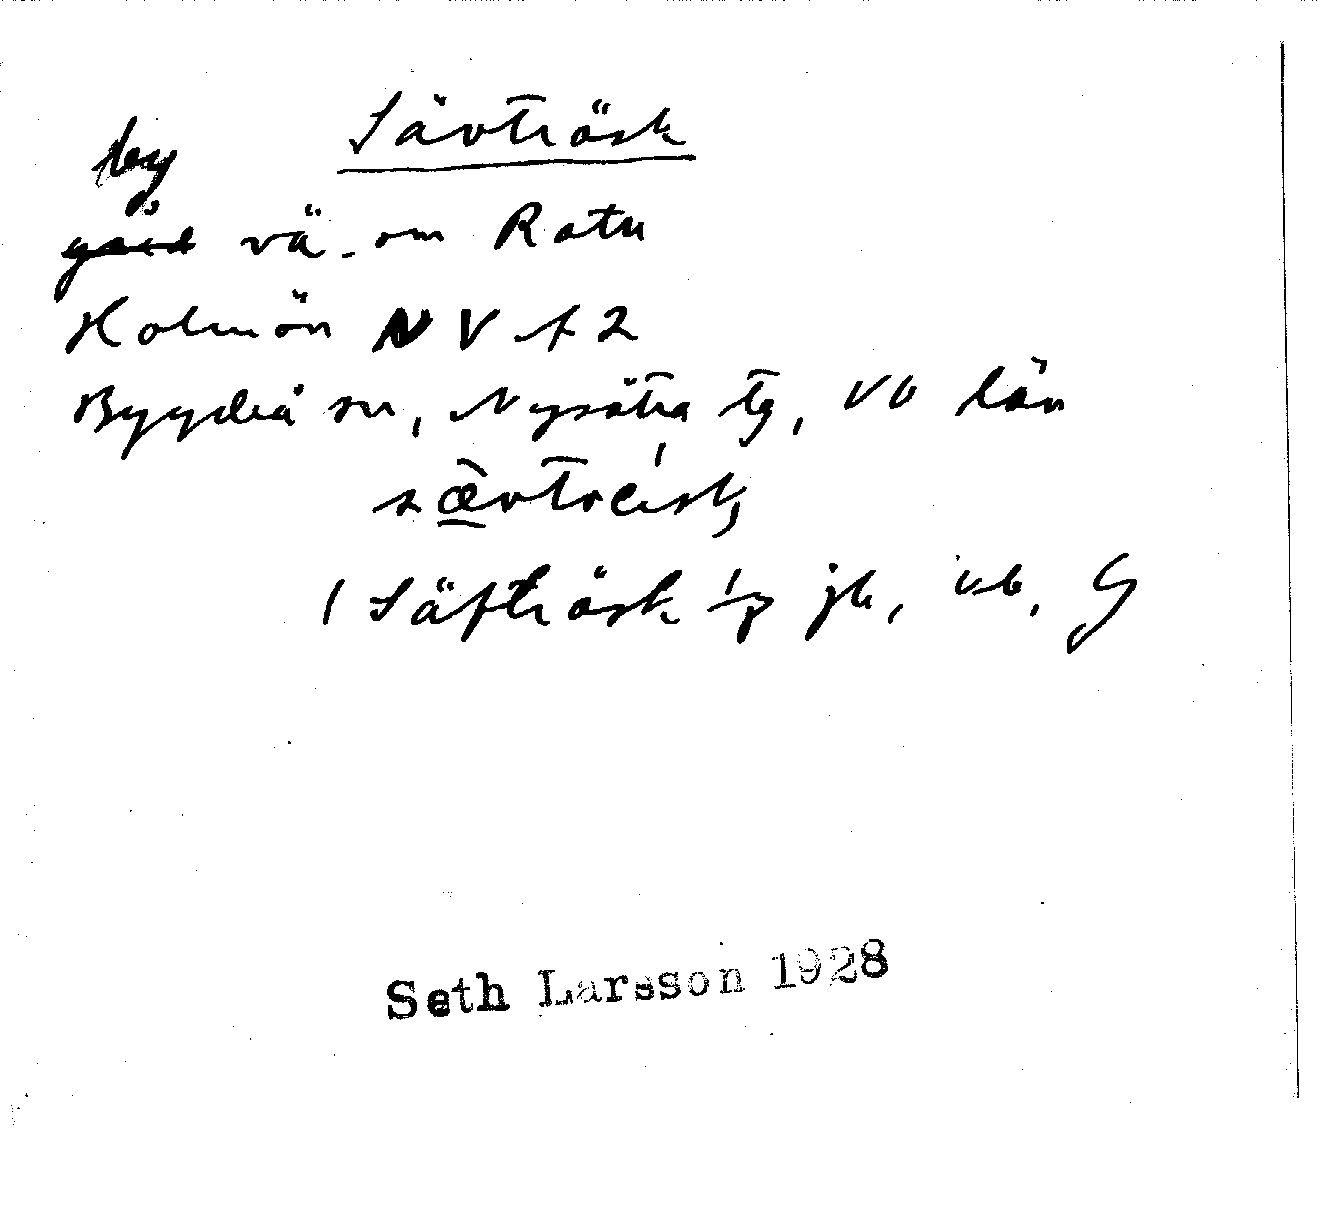 Sävträsk
by
gård vä. om Ratu
Holmön NV f 2
Bygdeå sn, Nysätra tg, Vb län
( Säfträsk jb,
Seth Larsson 1928